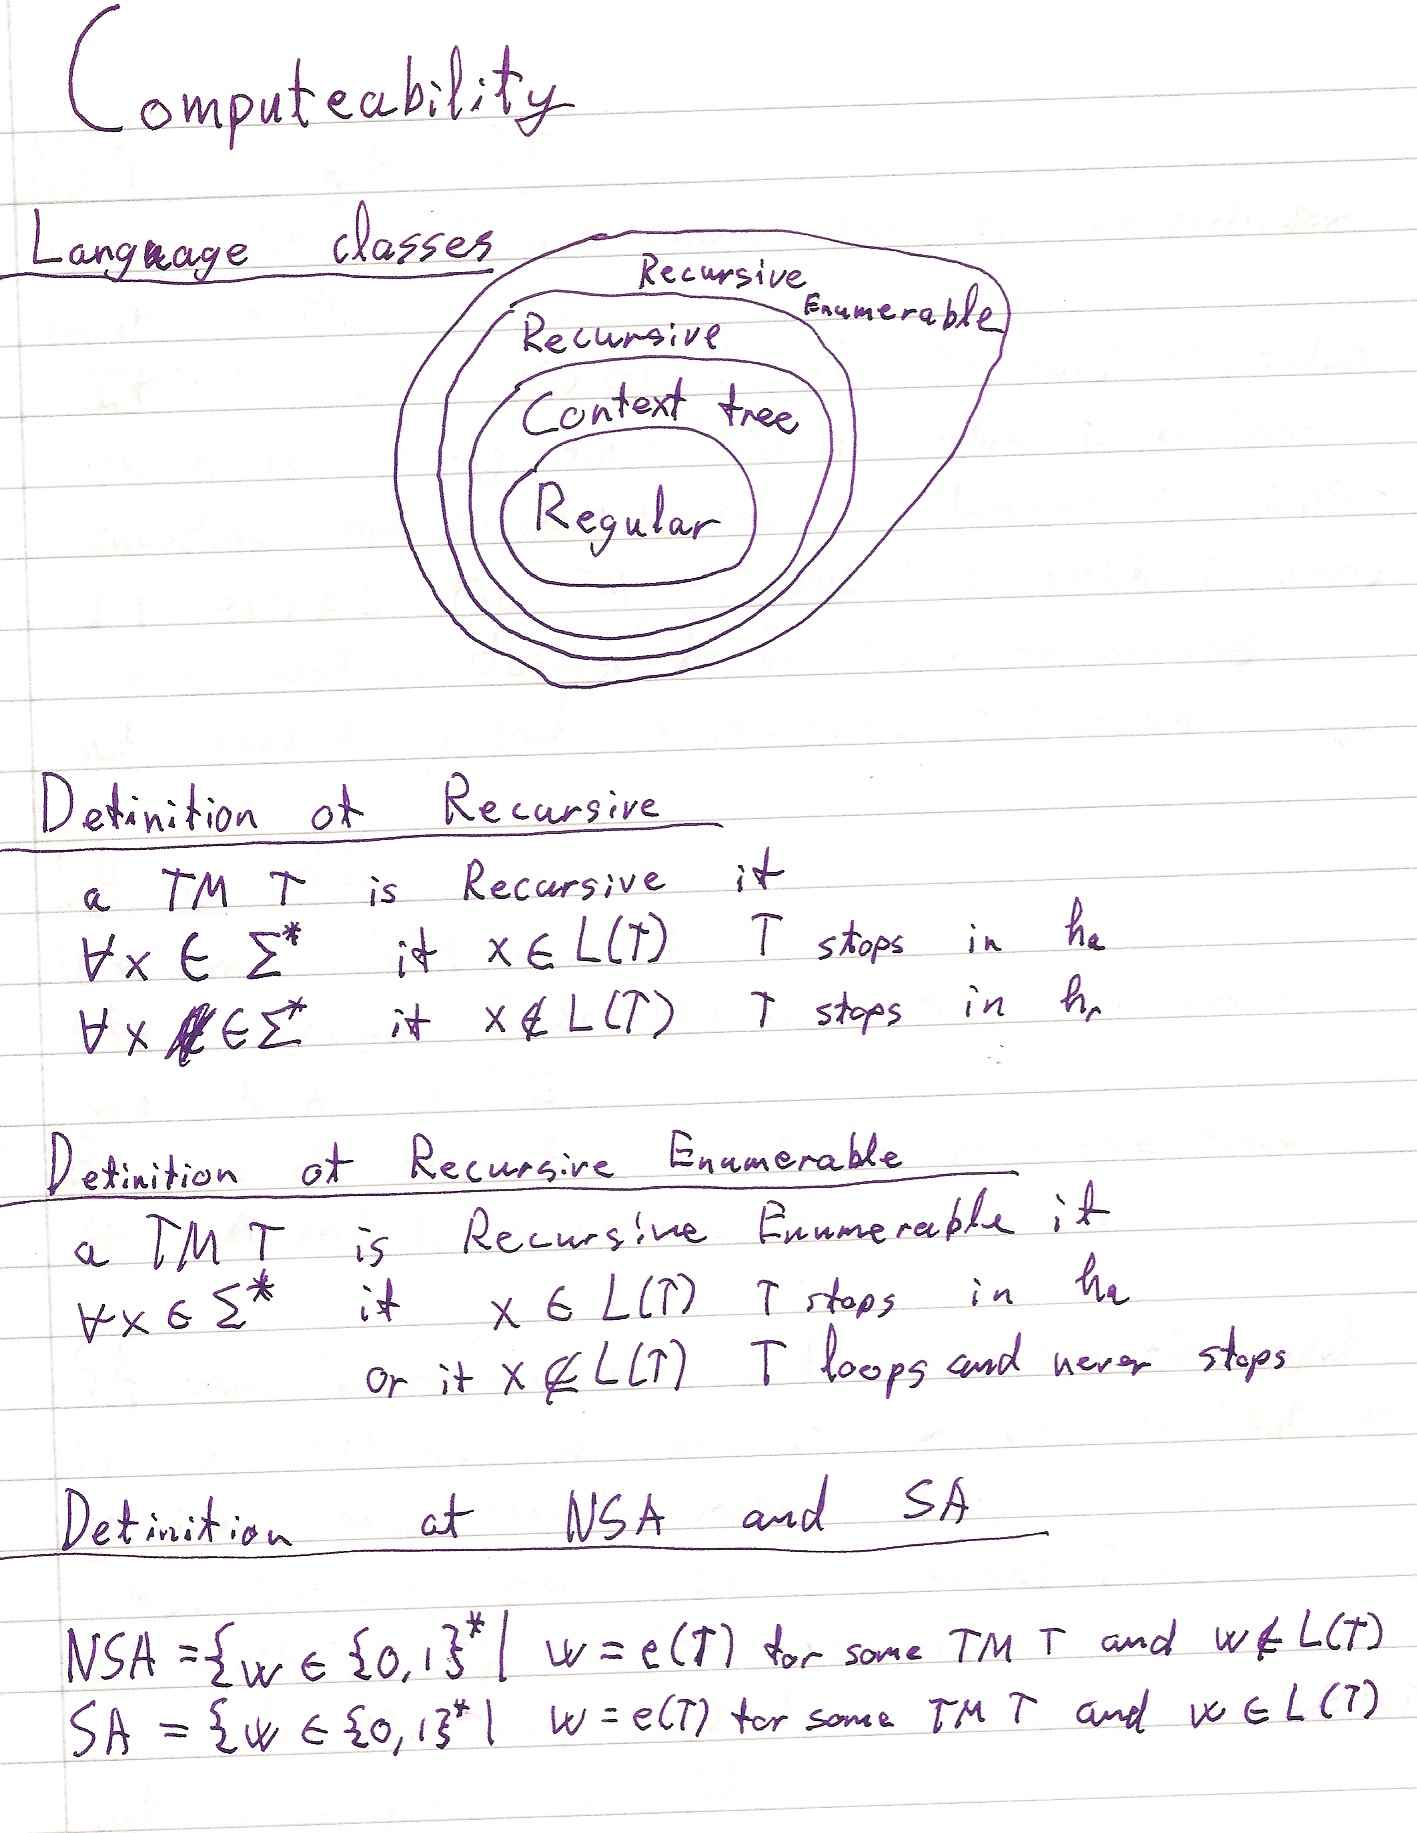 Computeability
Language classes
Recursive
Enumerable
Recursive
Context free
Regular
Definition of Recursive
a TM T is Recursive if
∀x ∈ Σ* if x ∈ L(T) T stops in hₐ
∀x ∈ Σ* if x ∉ L(T) T stops in hᵣ
Definition of Recursive Enumerable
a TM T is Recursive Enumerable if
∀x ∈ Σ* if x ∈ L(T) T stops in hₐ
or if x ∉ L(T) T loops and never stops
Definition of NSA and SA
NSA = {w ∈ {0,1}* | w = e(T) for some TM T and w ∉ L(T)
SA = {w ∈ {0,1}* | w = e(T) for some TM T and w ∈ L(T)